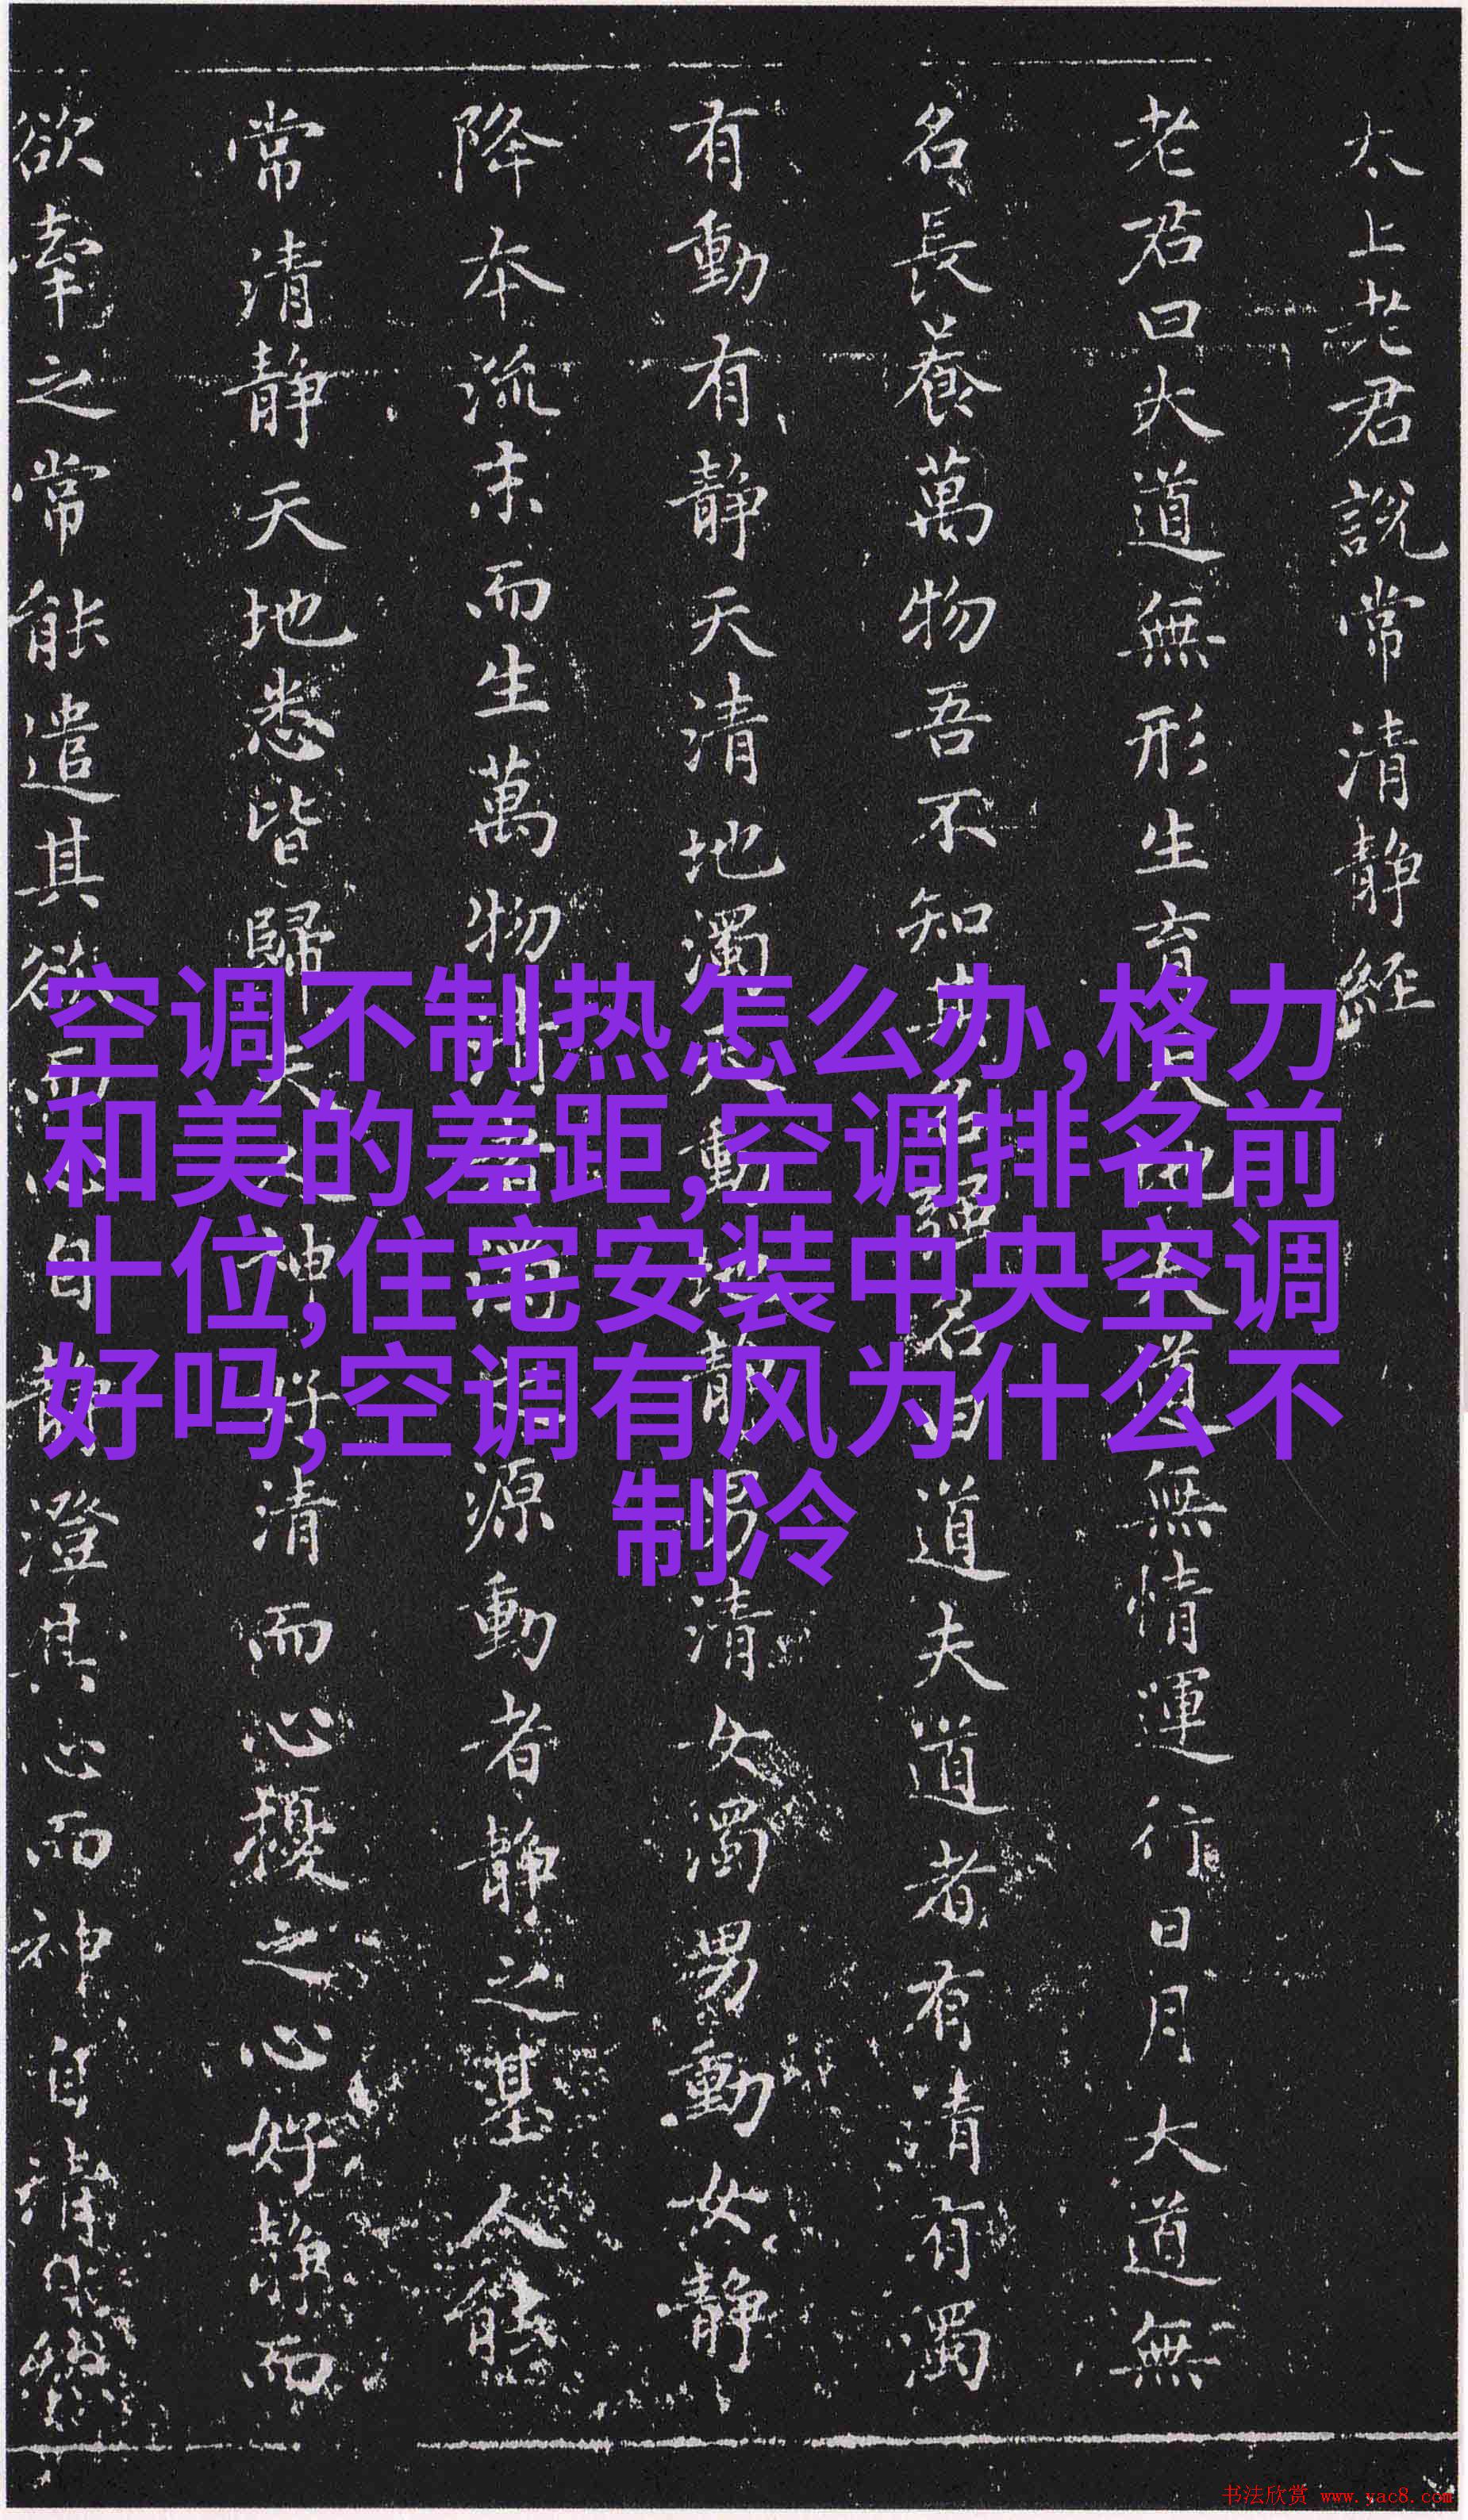 太上老君說常清静經
老君曰大道無形生育天地大道無情運行日月大道無
名長養萬物吾不知其名強名曰道夫道者有清有濁
有動有静天清地濁天動地静男清女濁男動女静
降本流末而生萬物清者濁之源動者静之基人能
常清静天地悉皆歸夫人神好清而心擾之心好静而
欲牽之常能遣其欲而心自静澄其心而神自清
空调不制热怎么办,格力
和美的差距,空调排名前
十位,住宅安装中央空调
好吗,空调有风为什么不
制冷
书法欣赏 www.yac8.com